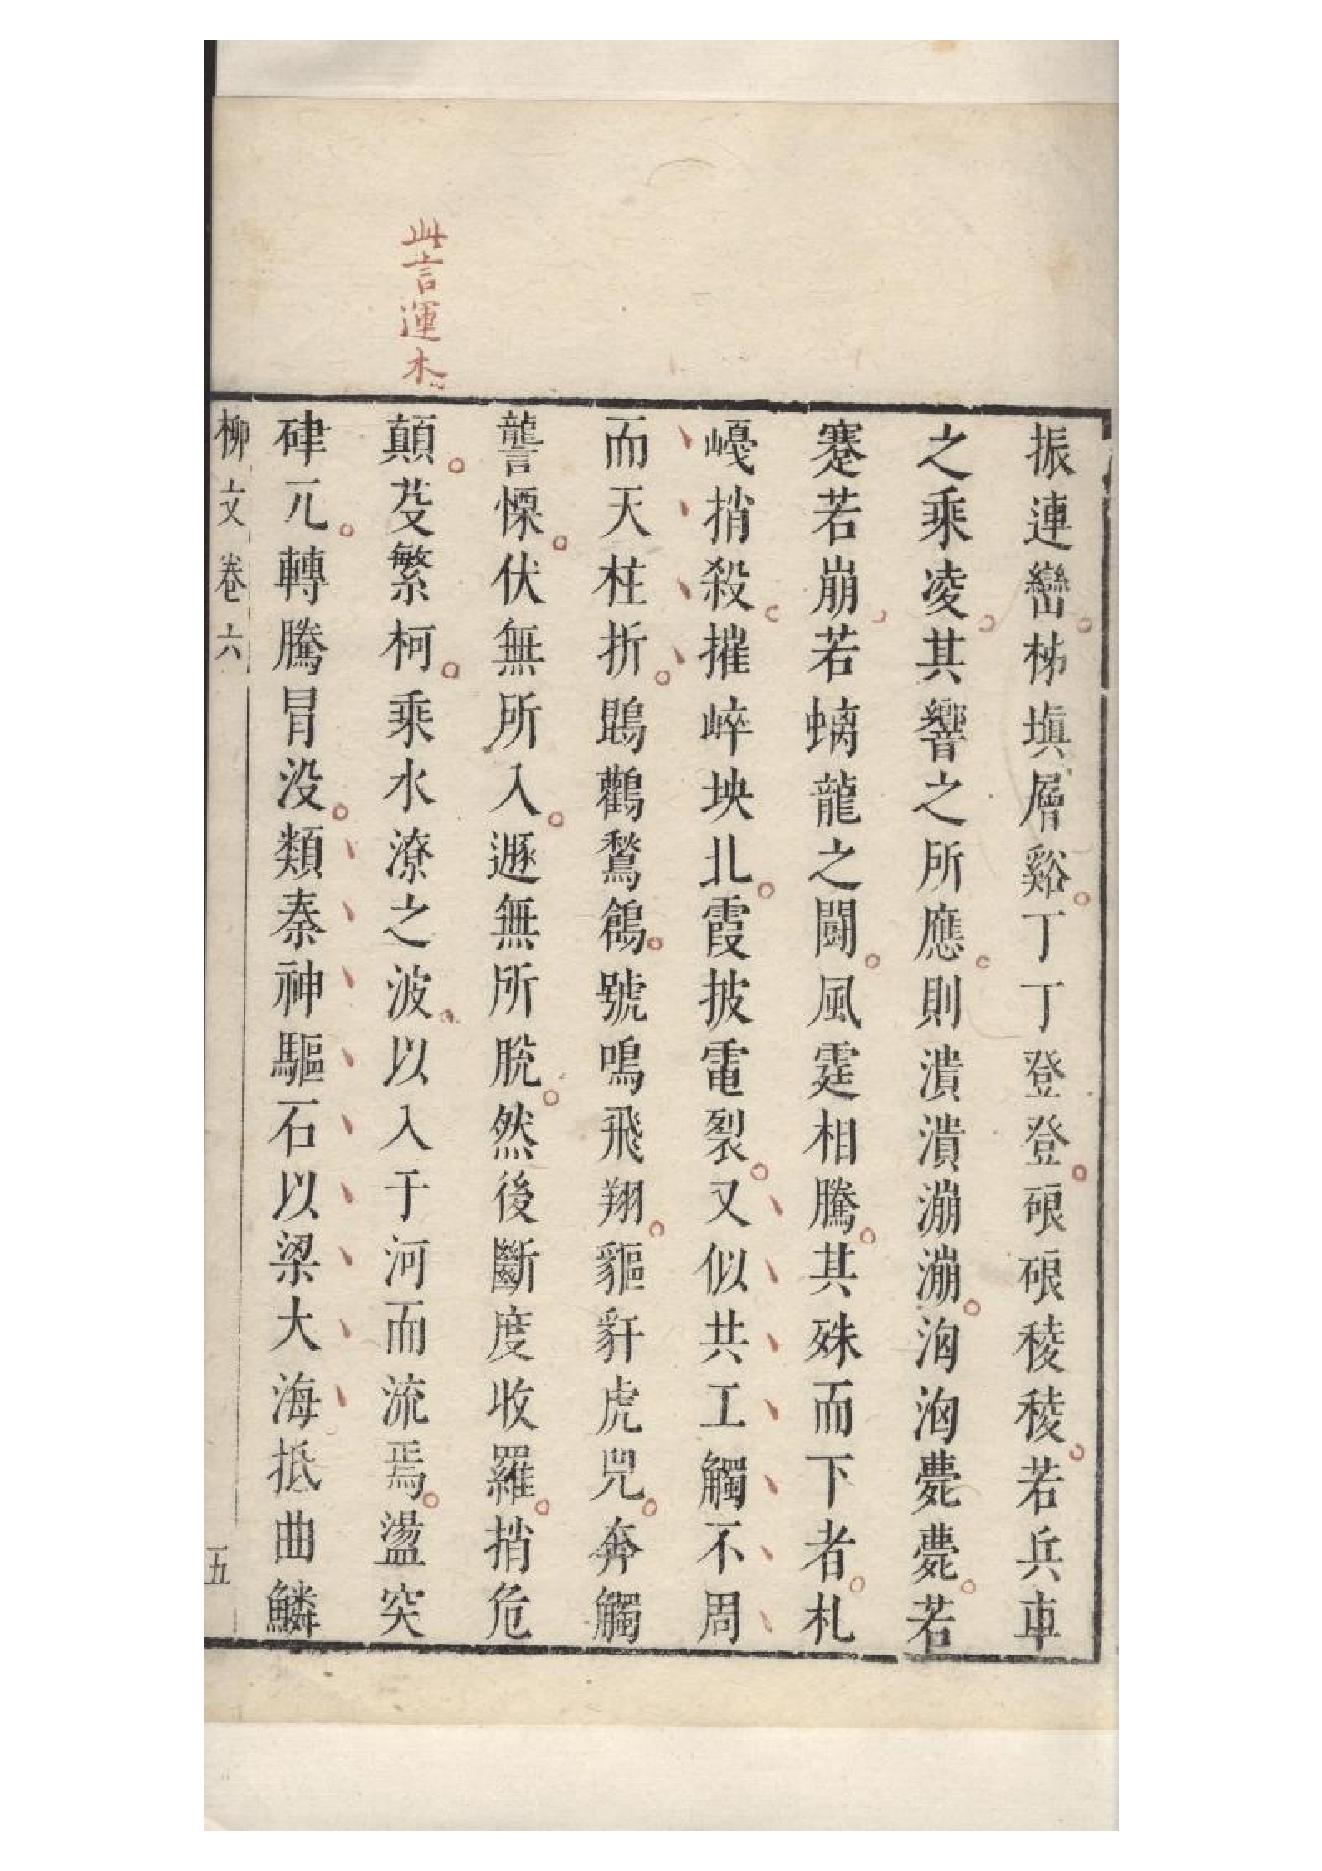 此言運木
振連巒柹塡層谿丁丁登登硠硠稜稜若兵車
之乘凌其響之所應則潰潰漰漰洶洶薨薨若
蹇若崩若螭龍之鬬風霆相騰其殊而下者札
嶘捎殺摧崪坱北霞披電裂又似共工觸不周
而天柱折鵾鸛鶖鶬號鳴飛翔貙豻虎兕奔觸
讋慄伏無所入遯無所脫然後斷度收羅捎危
顛芟繁柯乘水潦之波以入于河而流焉盪突
硉兀轉騰冒没類秦神驅石以梁大海抵曲鱗
柳文卷六
五